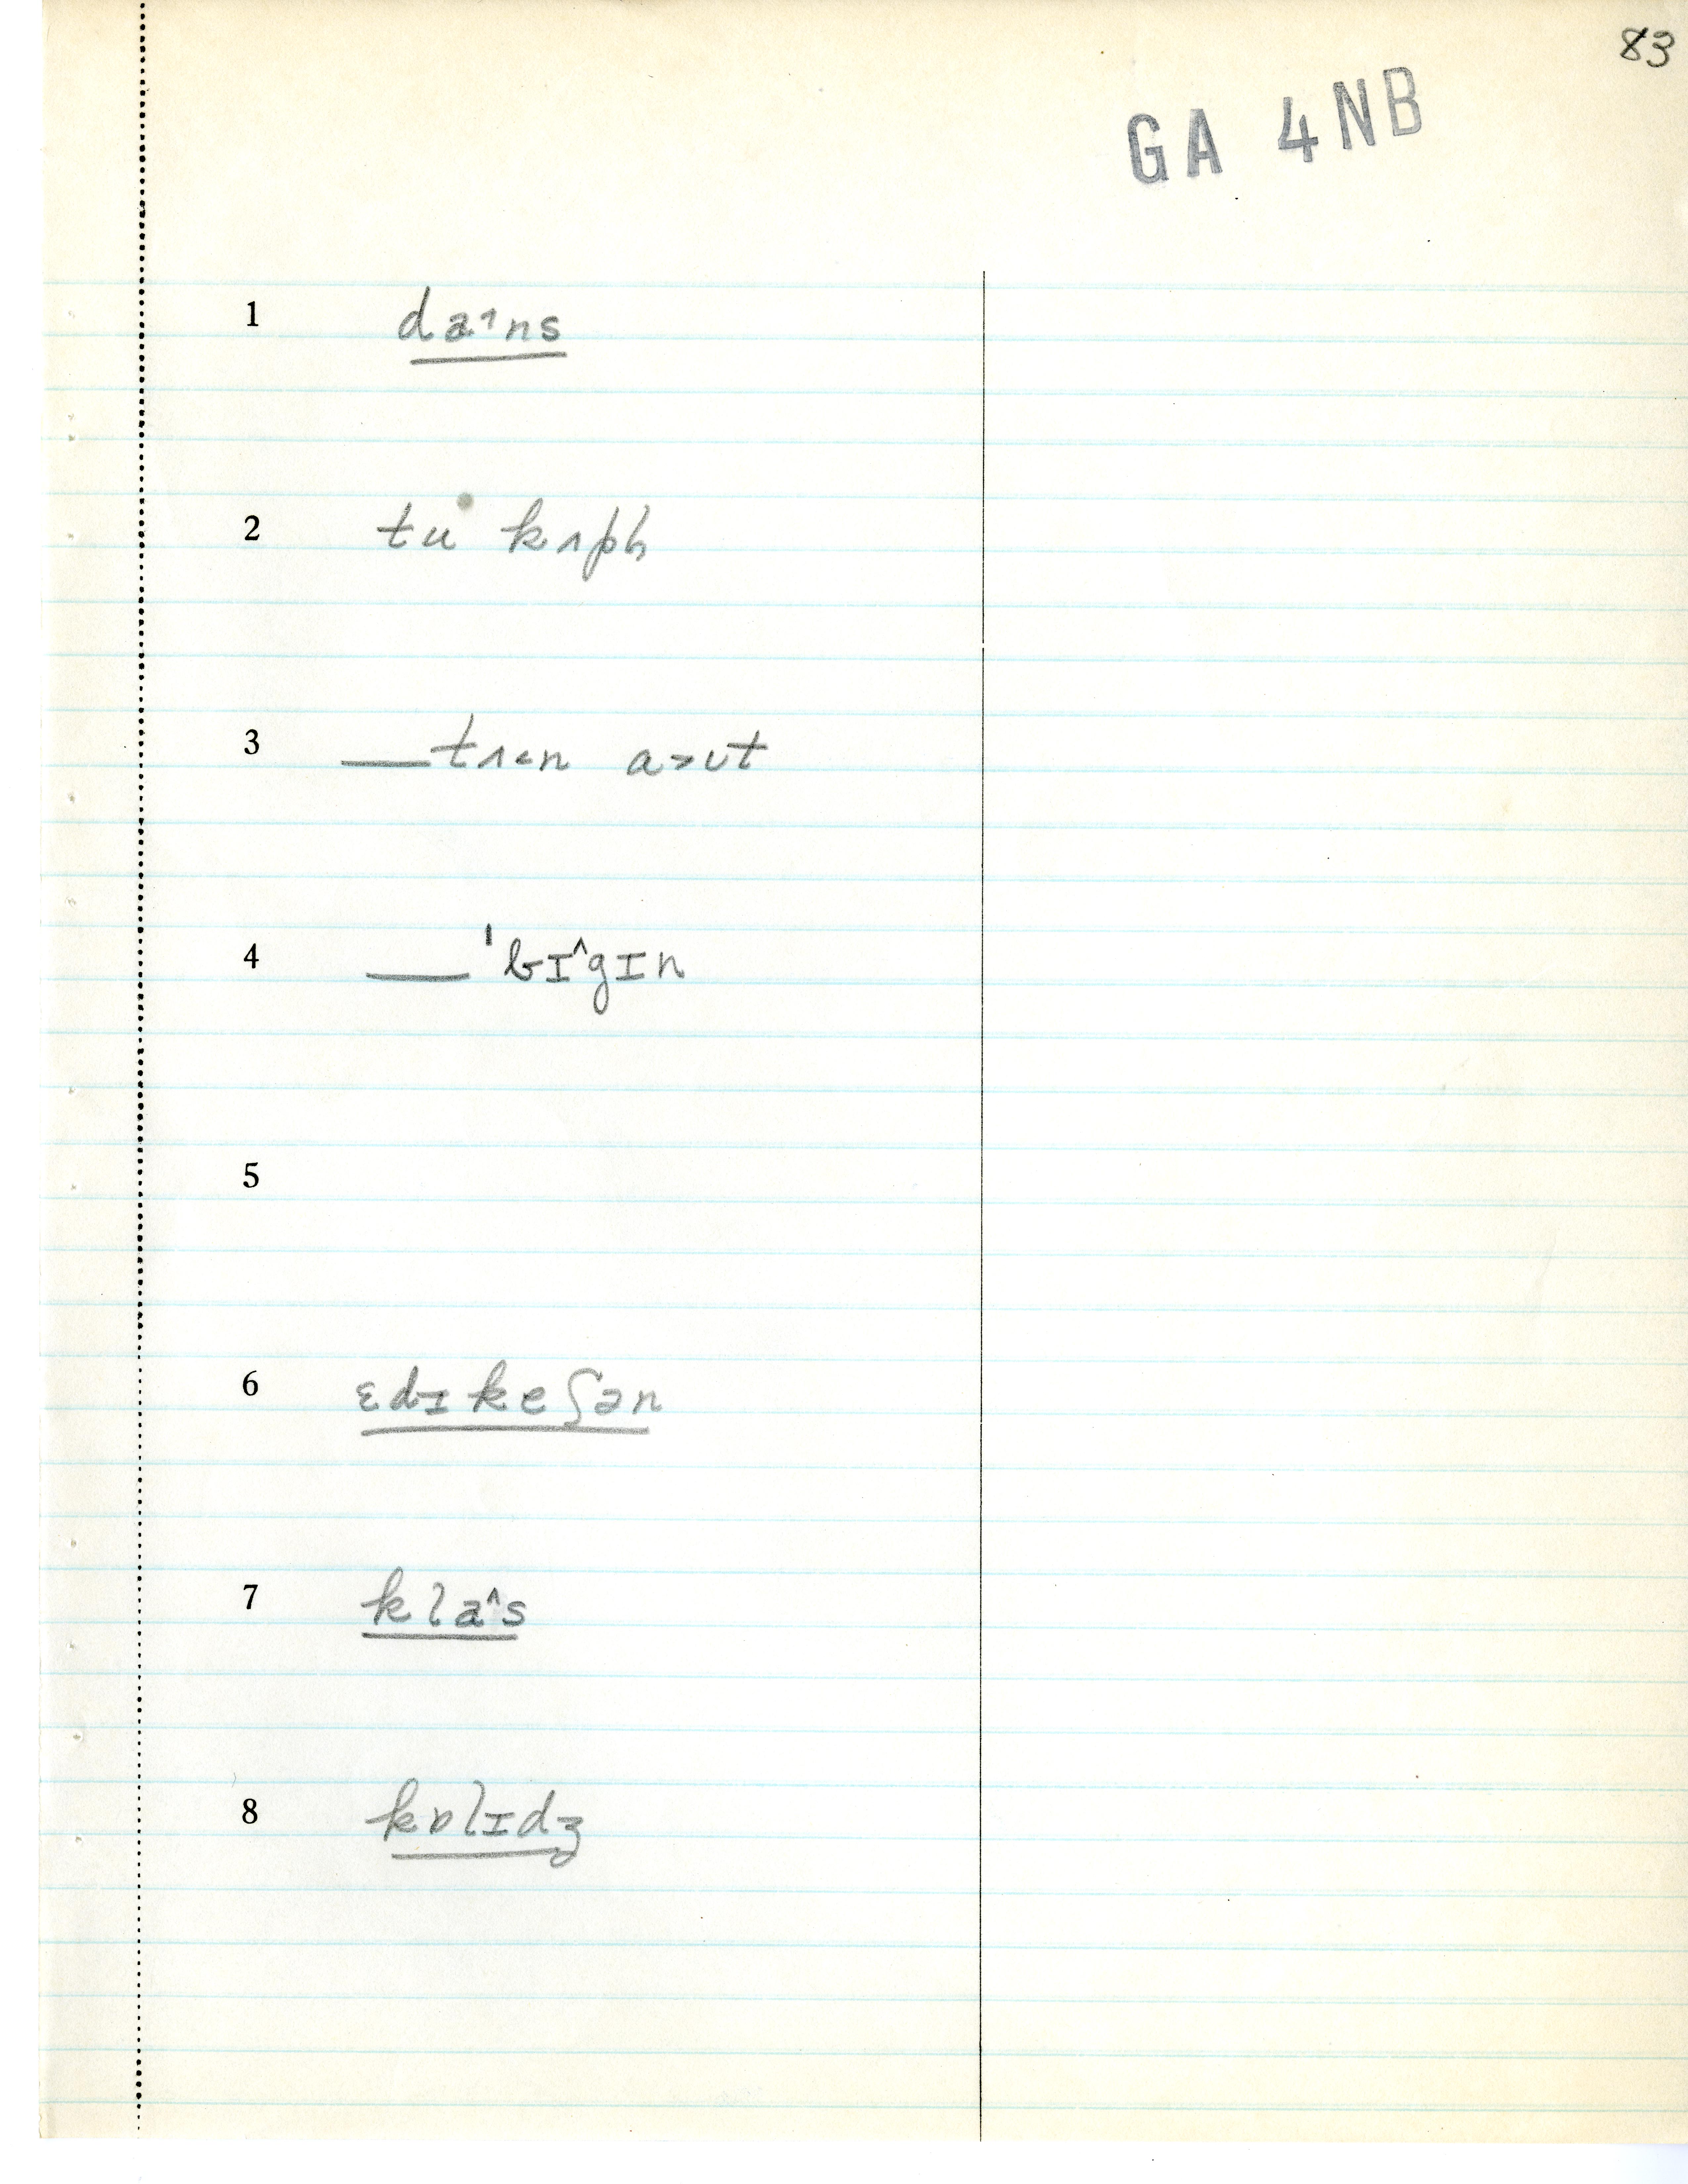 83
GA 4NB
1 da˄ns
2 tu kʌph
3 __tɜ˂n a˃ʊt
4 __ˈbɪ^gɪn
5
6 ɛdɪkeʃən
7 kla^s
8 kɒlɪdʒ